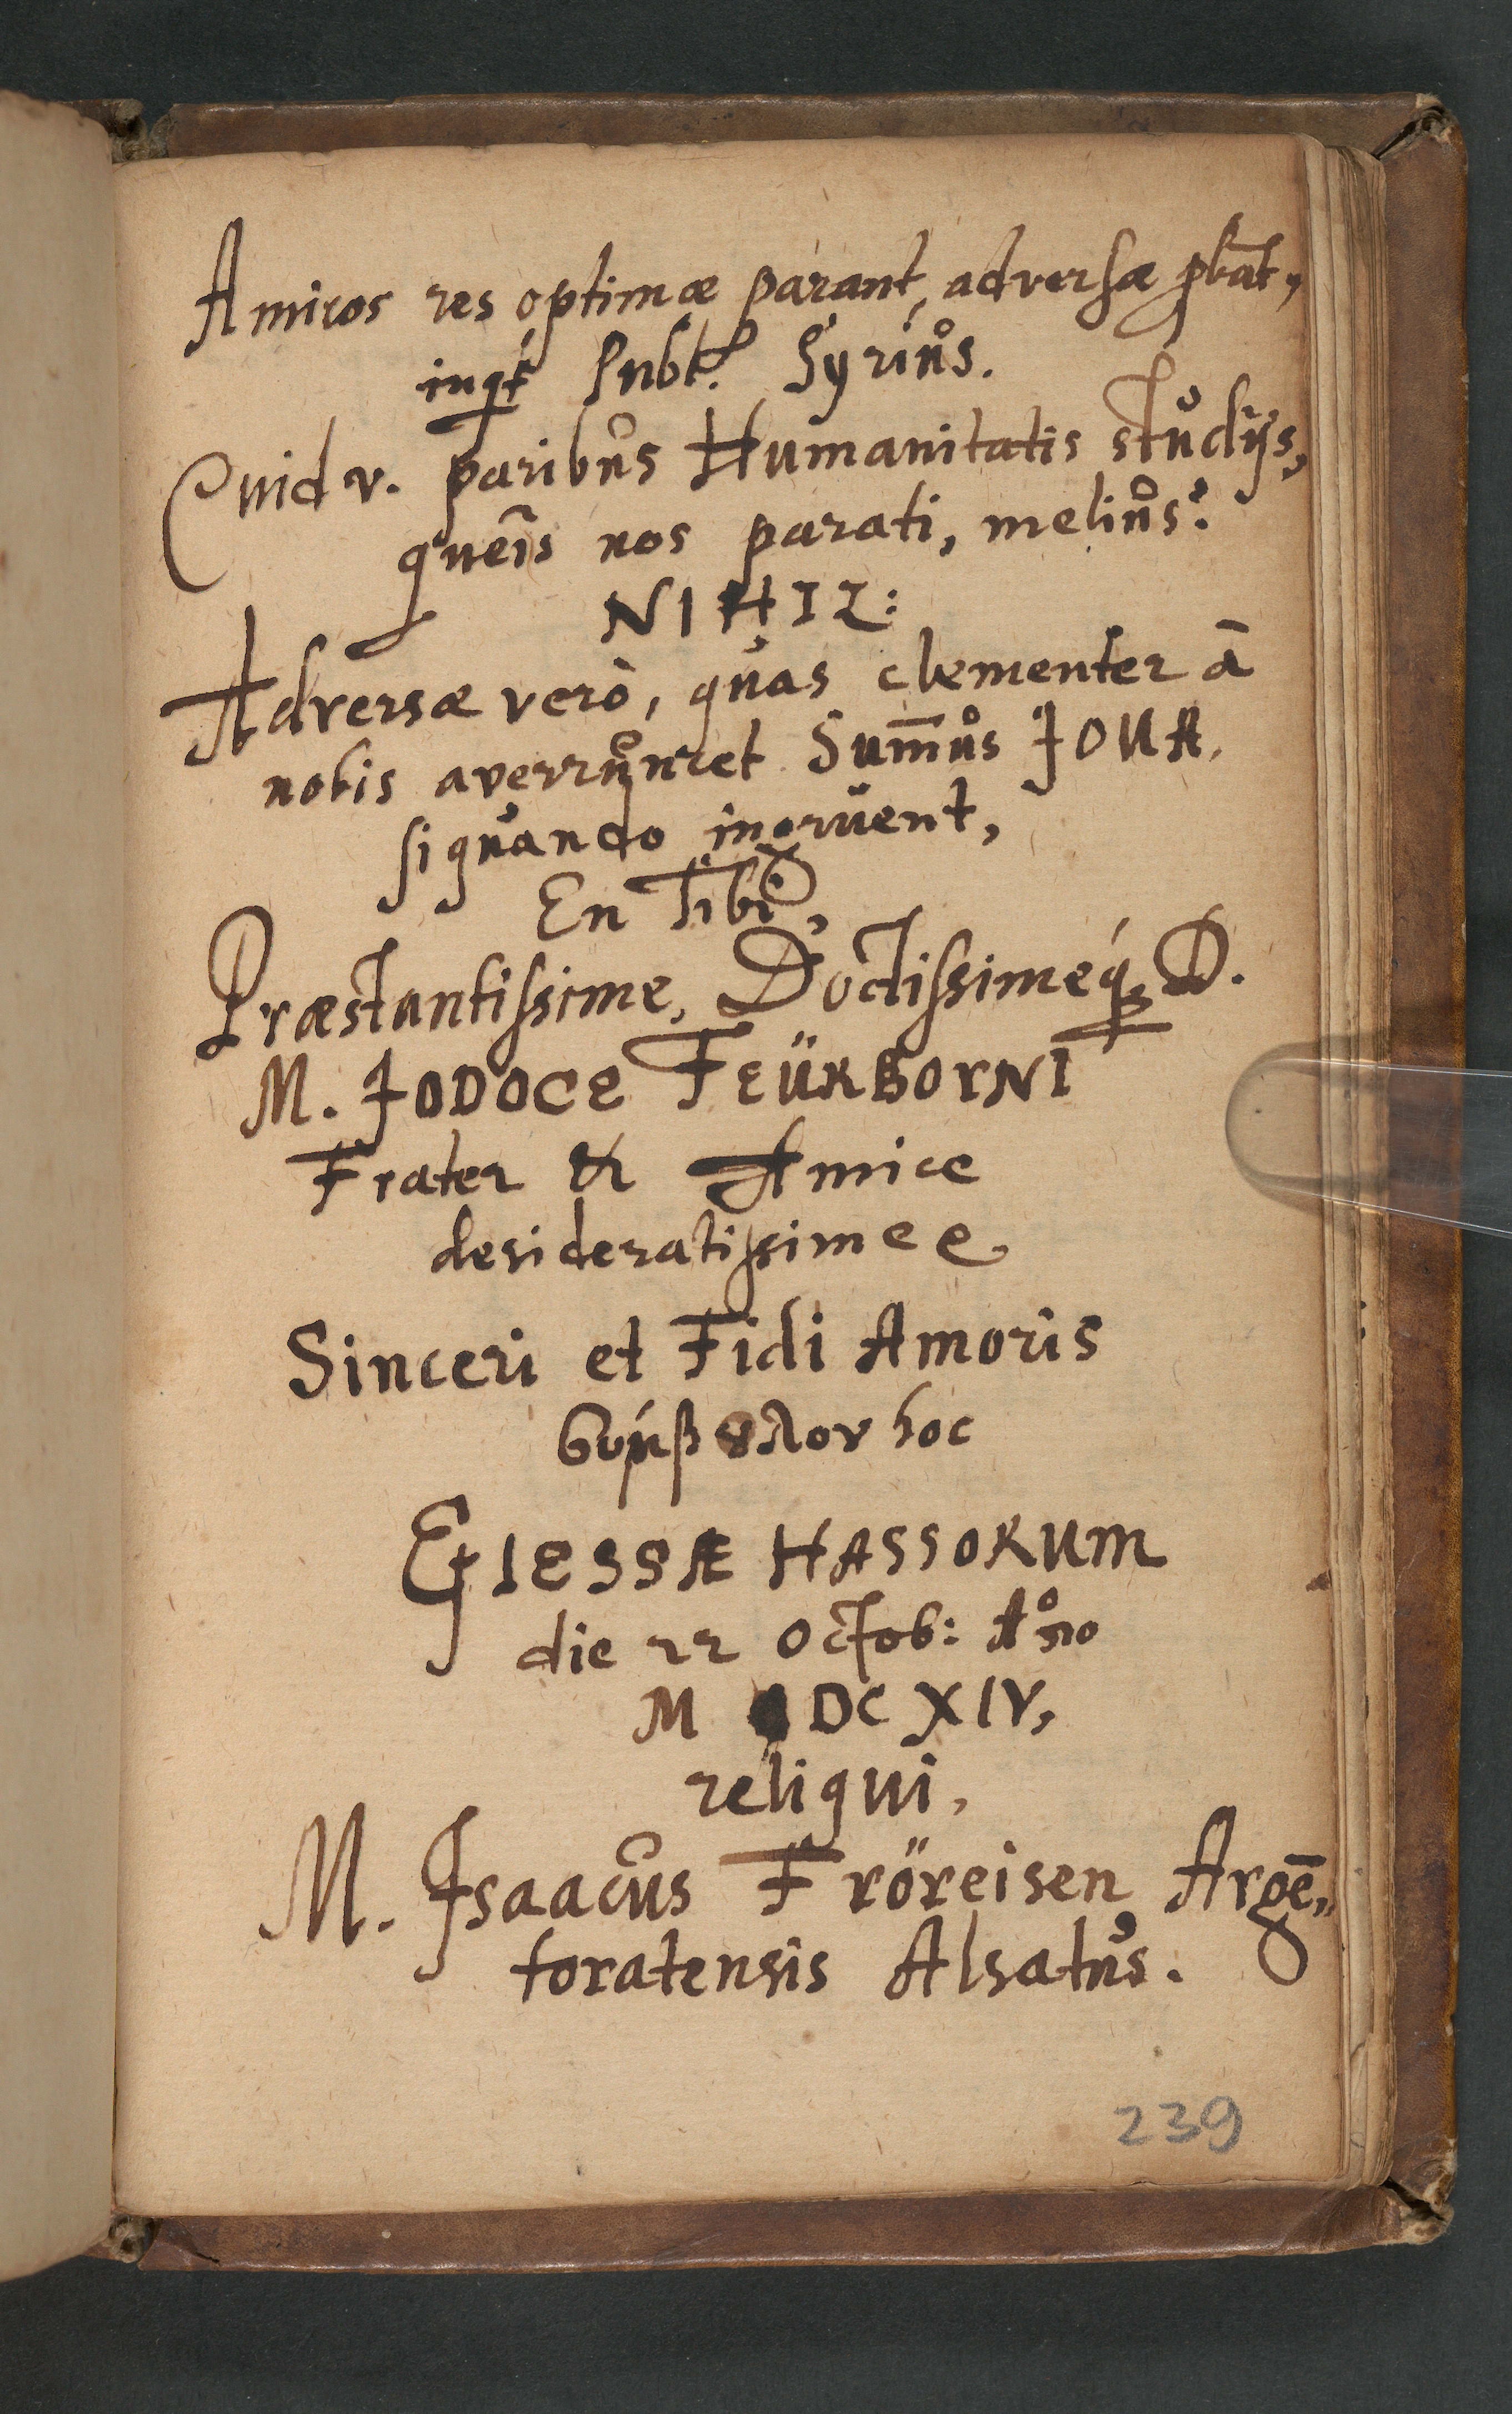 Amicos res optimæ parant, adversæ pbāt,
inqt Subt. Syrius.
Quid v. paribus Humanitatis studijs,
queis nos parati, melius?
NIHIL:
Adversæ verò, quas clementer ā
nobis averruncet Sum̄us JOUA.
si quando ingruent,
En Tibi,
Præstantissime, Doctissimeq́; D.
M. JODOCE FEÜRBORNI
Frater & Amice
desideratissimee
Sinceri et Fidi Amoris
σύμβολον hoc
GIESSÆ HASSORUM
die 22 Octob: Ano
M DC XIV,
reliqui.
M. Isaacus Fröreisen Argē„
toratensis Alsatus.
239